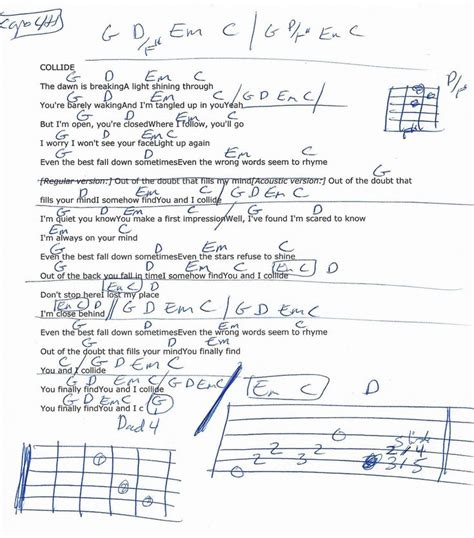 Capo 4th
G D/F# Em C / G D/F# Em C
COLLIDE
G D Em C
The dawn is breakingA light shining through
G D Em C / G D Em C /
You're barely wakingAnd I'm tangled up in youYeah
G D Em C
But I'm open, you're closedWhere I follow, you'll go
G D Em C
I worry I won't see your faceLight up again
G D Em C
Even the best fall down sometimesEven the wrong words seem to rhyme
G
[Regular version:] Out of the doubt that fills my mind[Acoustic version:] Out of the doubt that
D Em C / G D Em C
fills your mindI somehow findYou and I collide
G D C
I'm quiet you knowYou make a first impressionWell, I've found I'm scared to know
Em
I'm always on your mind
G D Em C
Even the best fall down sometimesEven the stars refuse to shine
G D Em C Em C D
Out of the back you fall in timeI somehow findYou and I collide
Em C D
Don't stop hereI lost my place
Em C D // G D Em C / G D Em C
I'm close behind
G D Em C
Even the best fall down sometimesEven the wrong words seem to rhyme
G D Em
Out of the doubt that fills your mindYou finally find
C / G D Em C
You and I collide
G D Em C / G D Em C
You finally findYou and I collide
G D Em C G
You finally findYou and I c
Em C D
0 2 2 3 2 0